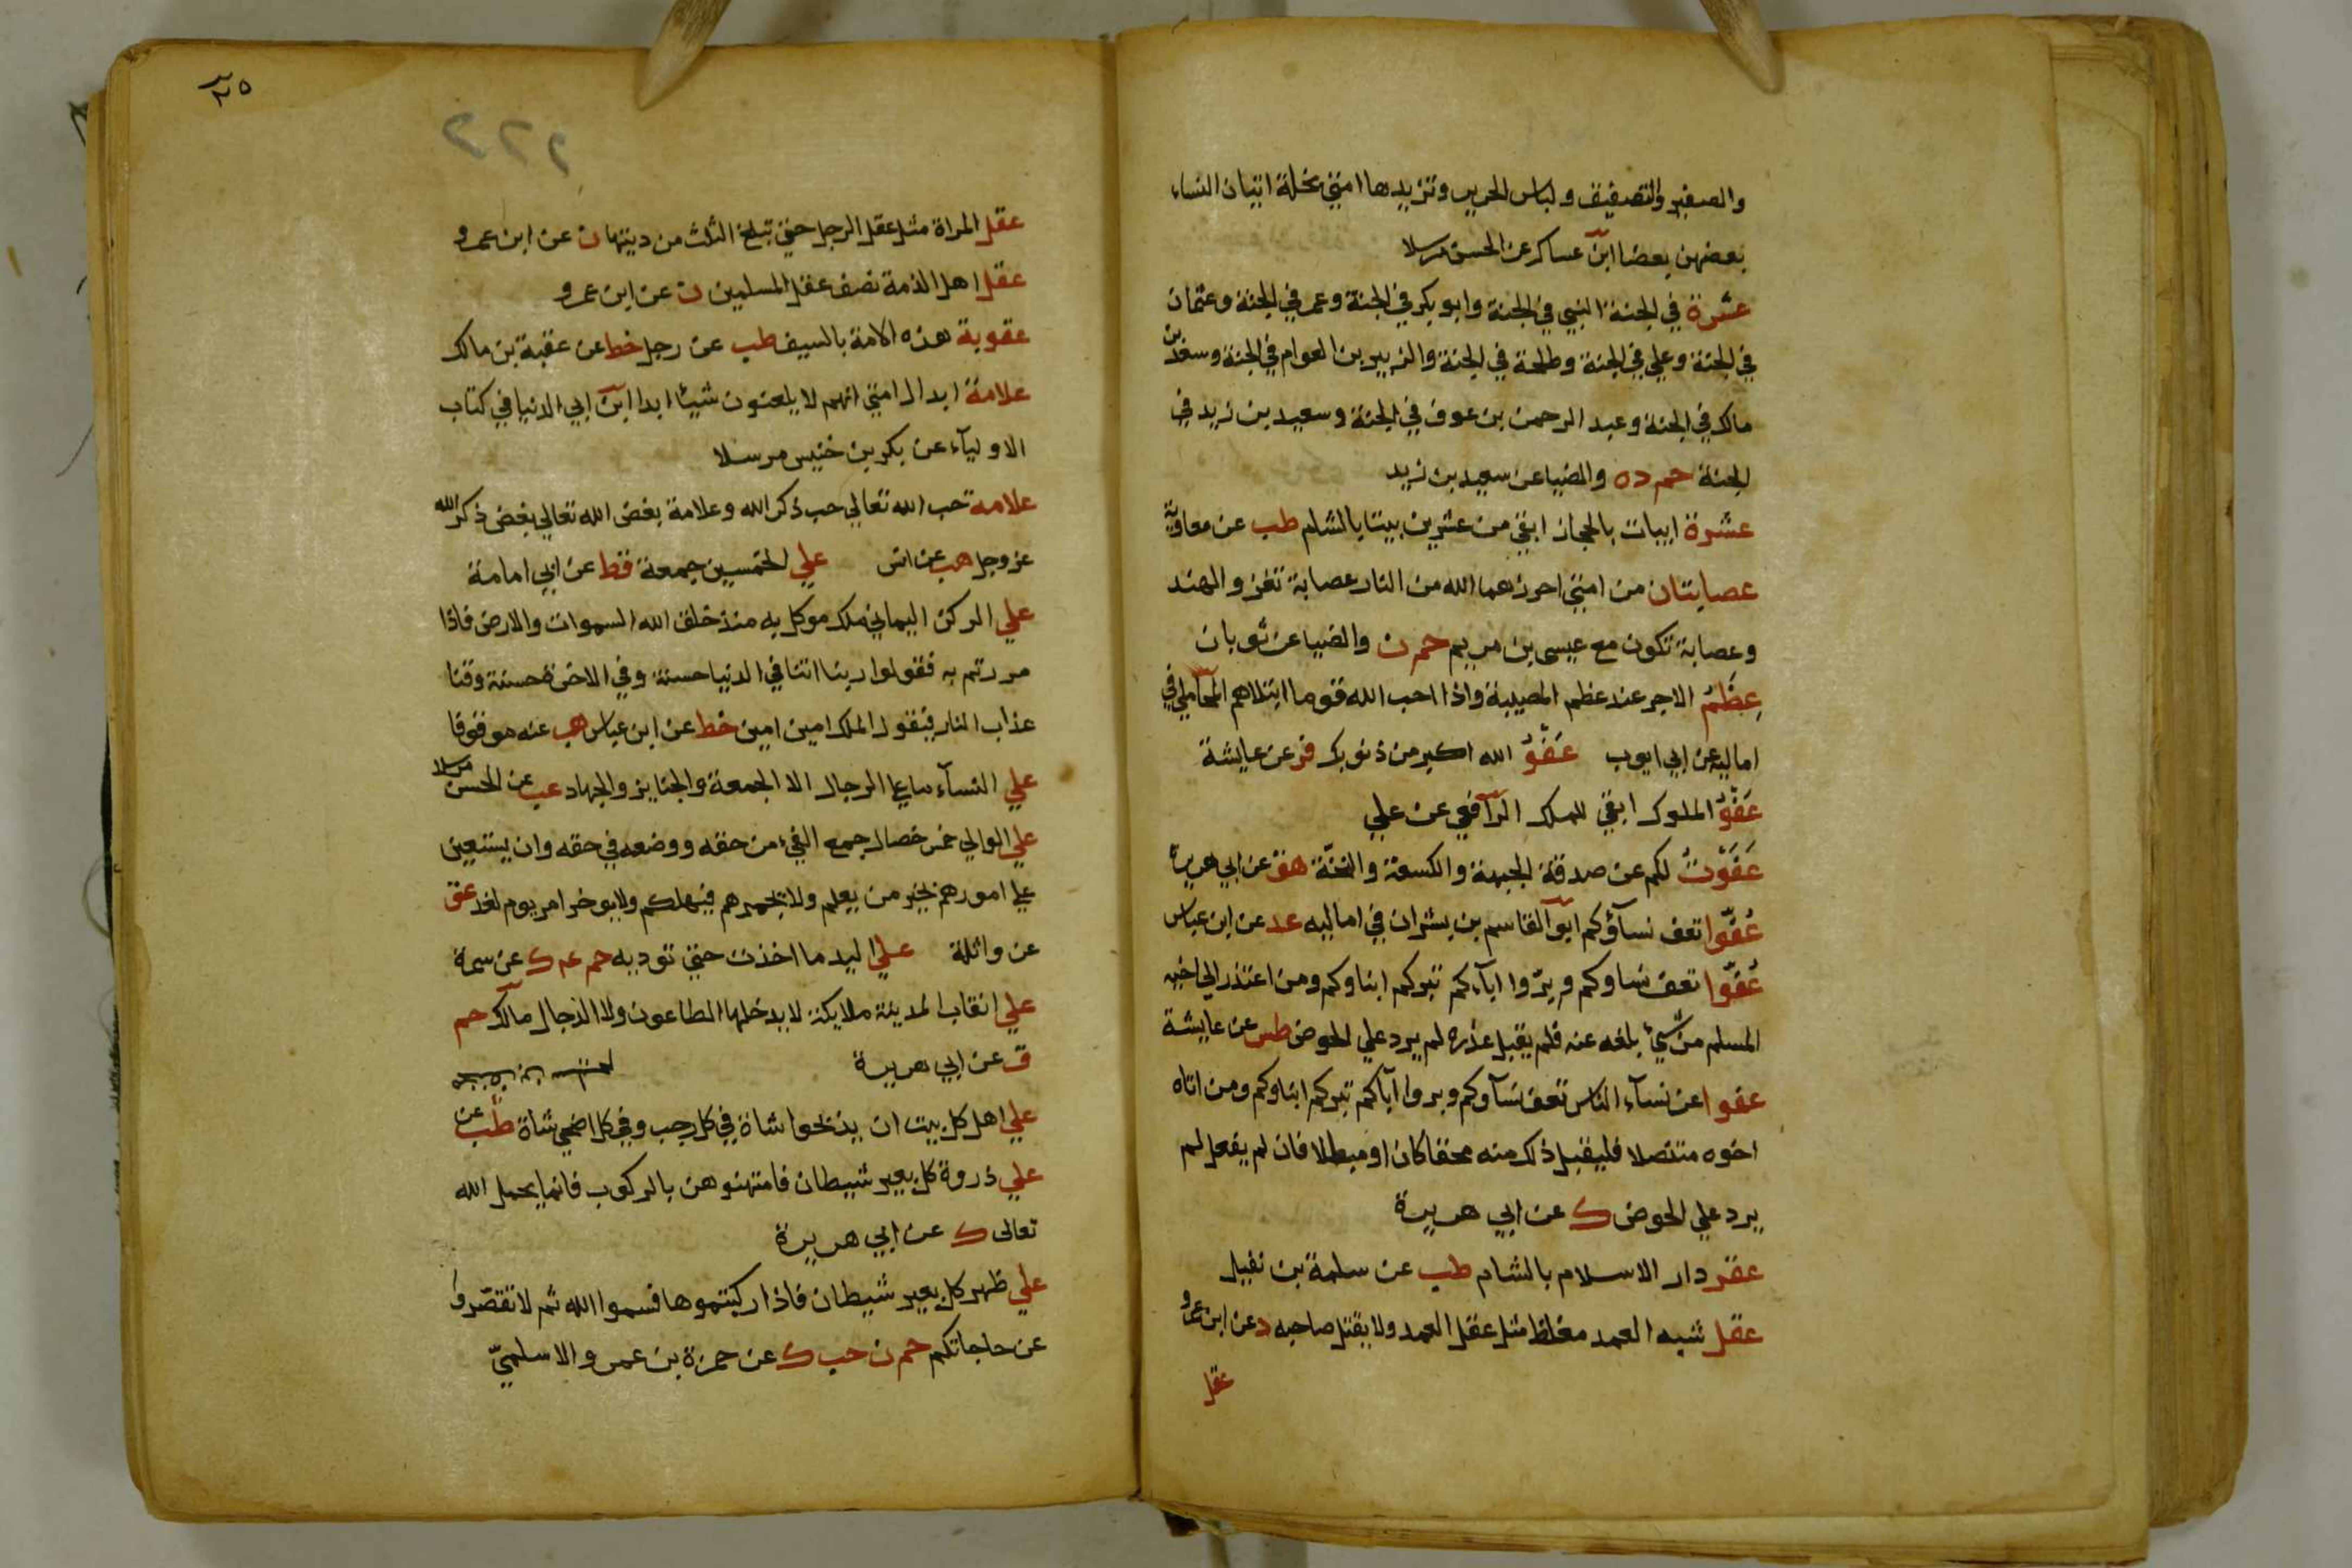 والصفير والتصفيق ولباس الحرير وتزيدها امتي بخلة اتيان النساء
بعضهن بعضا ابن عساكر عن الحسن مرسلا
عشرة في الجنة النبي في الجنة وابو بكر في الجنة وعمر في الجنة وعثمان
في الجنة وعلي في الجنة وطلحة في الجنة والزبير بن العوام في الجنة وسعد بن
مالك في الجنة وعبد الرحمن بن عوف في الجنة وسعيد بن زيد في
الجنة حم د ه والضيا عن سعيد بن زيد
عشرة ابيات بالحجاز ابقي من عشرين بيتا بالشام طب عن معاوية
عصابتان من امتي احرزهما الله من النار عصابة تغزو الهند
وعصابة تكون مع عيسي بن مريم حم ن والضيا عن ثوبان
عِظَمُ الاجر عند عظم المصيبة واذا احب الله قوما ابتلاهم المحاملي في
اماليه عن ابي ايوب عَفْوُ الله اكبر من ذنوبك فر عن عايشة
عَفْوُ الملوك ابقي للملك الرافعي عن علي
عَفَوْتُ لكم عن صدقة الجبهة والكسعة والنخّة هق عن ابي هريرة
عُفّوا تعف نسآؤكم ابو القاسم بن بشران في اماليه عد عن ابن عباس
عُفّوا تعف نساوكم وبرّوا ابآءكم تبركم ابناوكم ومن اعتذر الي اخيه
المسلم من شيء بلغه عنه فلم يقبل عذره لم يرد علي الحوض طس عن عايشة
عفوا عن نسآء الناس تعف نسآوكم وبروا اباكم تبركم ابناوكم ومن اتاه
اخوه متنصلا فليقبل ذلك منه محقا كان او مبطلا فان لم يفعل لم
يرد علي الحوض ك عن ابي هريرة
عقر دار الاسلام بالشام طب عن سلمة بن نفيل
عقل شبه العمد مغلظ مثل عقل العمد ولا يقتل صاحبه د عن ابن عمرو
عقل
٢٥
٢٢٢
عقل المراة مثل عقل الرجل حتي تبلغ الثلث من ديتها ن عن ابن عمرو
عقل اهل الذمة نصف عقل المسلمين ن عن ابن عمرو
عقوبة هذه الامة بالسيف طب عن رجل خط عن عقبة بن مالك
علامة ابدال امتي انهم لا يلعنون شيئا ابدا ابن ابي الدنيا في كتاب
الاوليآء عن بكر بن خنيس مرسلا
علامة حب الله تعالي حب ذكر الله وعلامة بغض الله تعالي بغض ذكر الله
عز وجل هب عن انس علي الخمسين جمعة قط عن ابي امامة
علي الركن اليماني ملك موكل به منذ خلق الله السموات والارض فاذا
مررتم به فقولوا ربنا اتنا في الدنيا حسنة وفي الاخرة حسنة وقنا
عذاب النار فيقول الملك امين امين خط عن ابن عباس هب عنه موقوفا
علي النسآء ما علي الرجال الا الجمعة والجنايز والجهاد عب عن الحسن مرسلا
علي الوالي خمس خصال جمع الفيء من حقه ووضعه في حقه وان يستعين
علي امورهم بخير من يعلم ولا يجمرهم فيهلكهم ولا يوخر امر يوم لغد عق
عن واثلة علي اليد ما اخذت حتي توديه حم عه ك عن سمرة
علي انقاب المدينة ملايكة لا يدخلها الطاعون ولا الدجال مالك حم
ق عن ابي هريرة
علي اهل كل بيت ان يذبحوا شاة في كل رجب وفي كل اضحي شاة طب عن
علي ذروة كل بعير شيطان فامتهنوهن بالركوب فانما يحمل الله
تعالى ك عن ابي هريرة
علي ظهر كل بعير شيطان فاذا ركبتموها فسموا الله ثم لا تقصّروا
عن حاجاتكم حم ن حب ك عن حمزة بن عمرو الاسلميّ